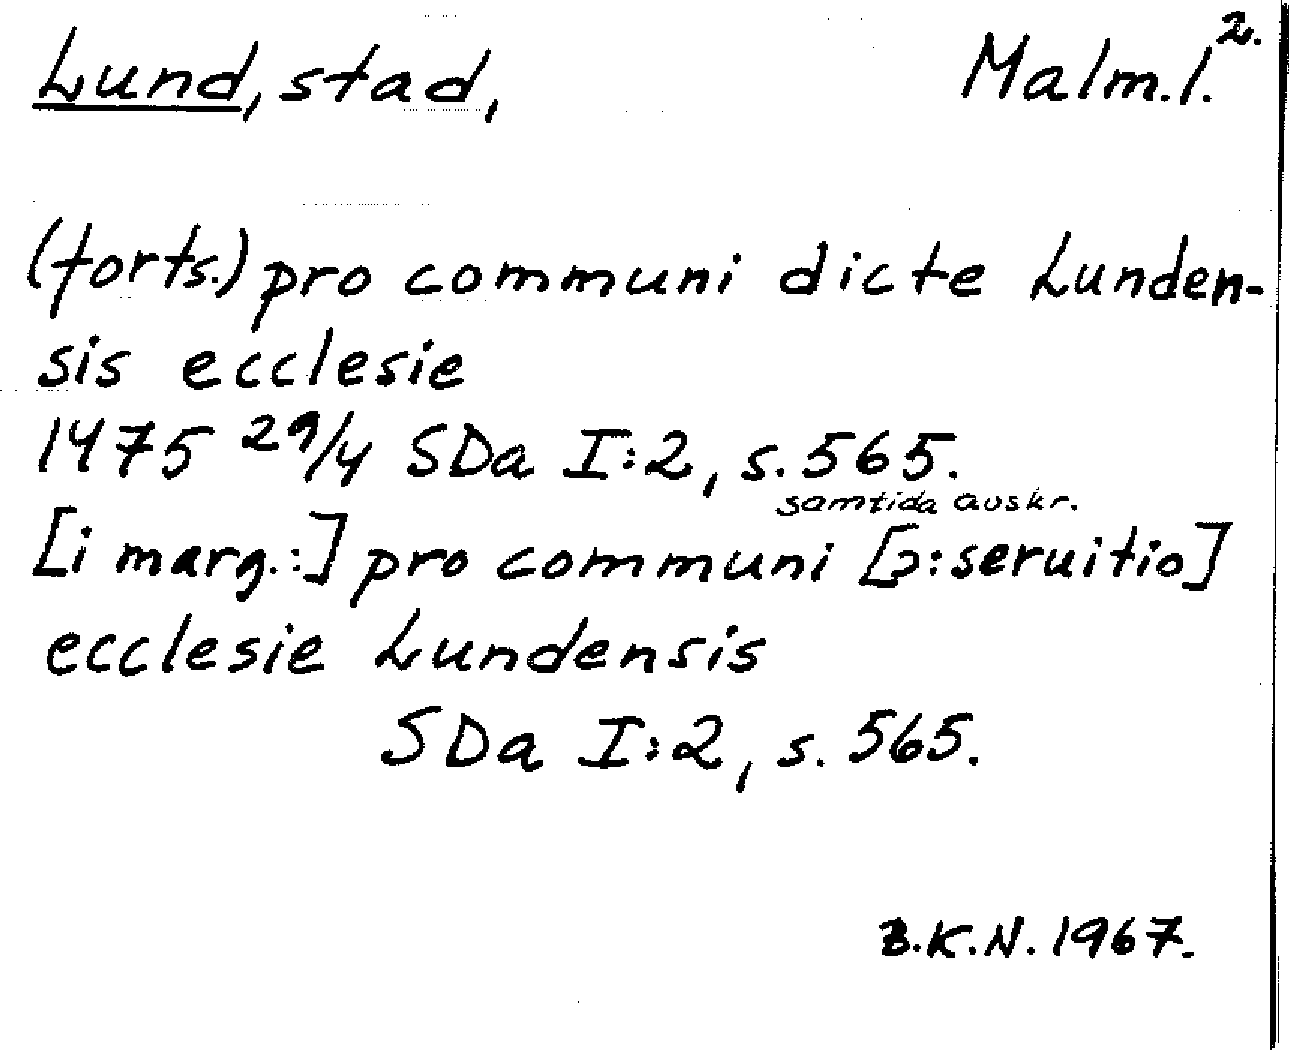 Lund, stad, Malm.l. 2.
(forts.) pro communi dicte Lunden-
sis ecclesie
1475 29/4 SDa I:2, s. 565.
samtida avskr.
[i marg.:] pro communi [ɔ: seruitio]
ecclesie Lundensis
SDa I:2, s. 565.
B.K.N. 1967.